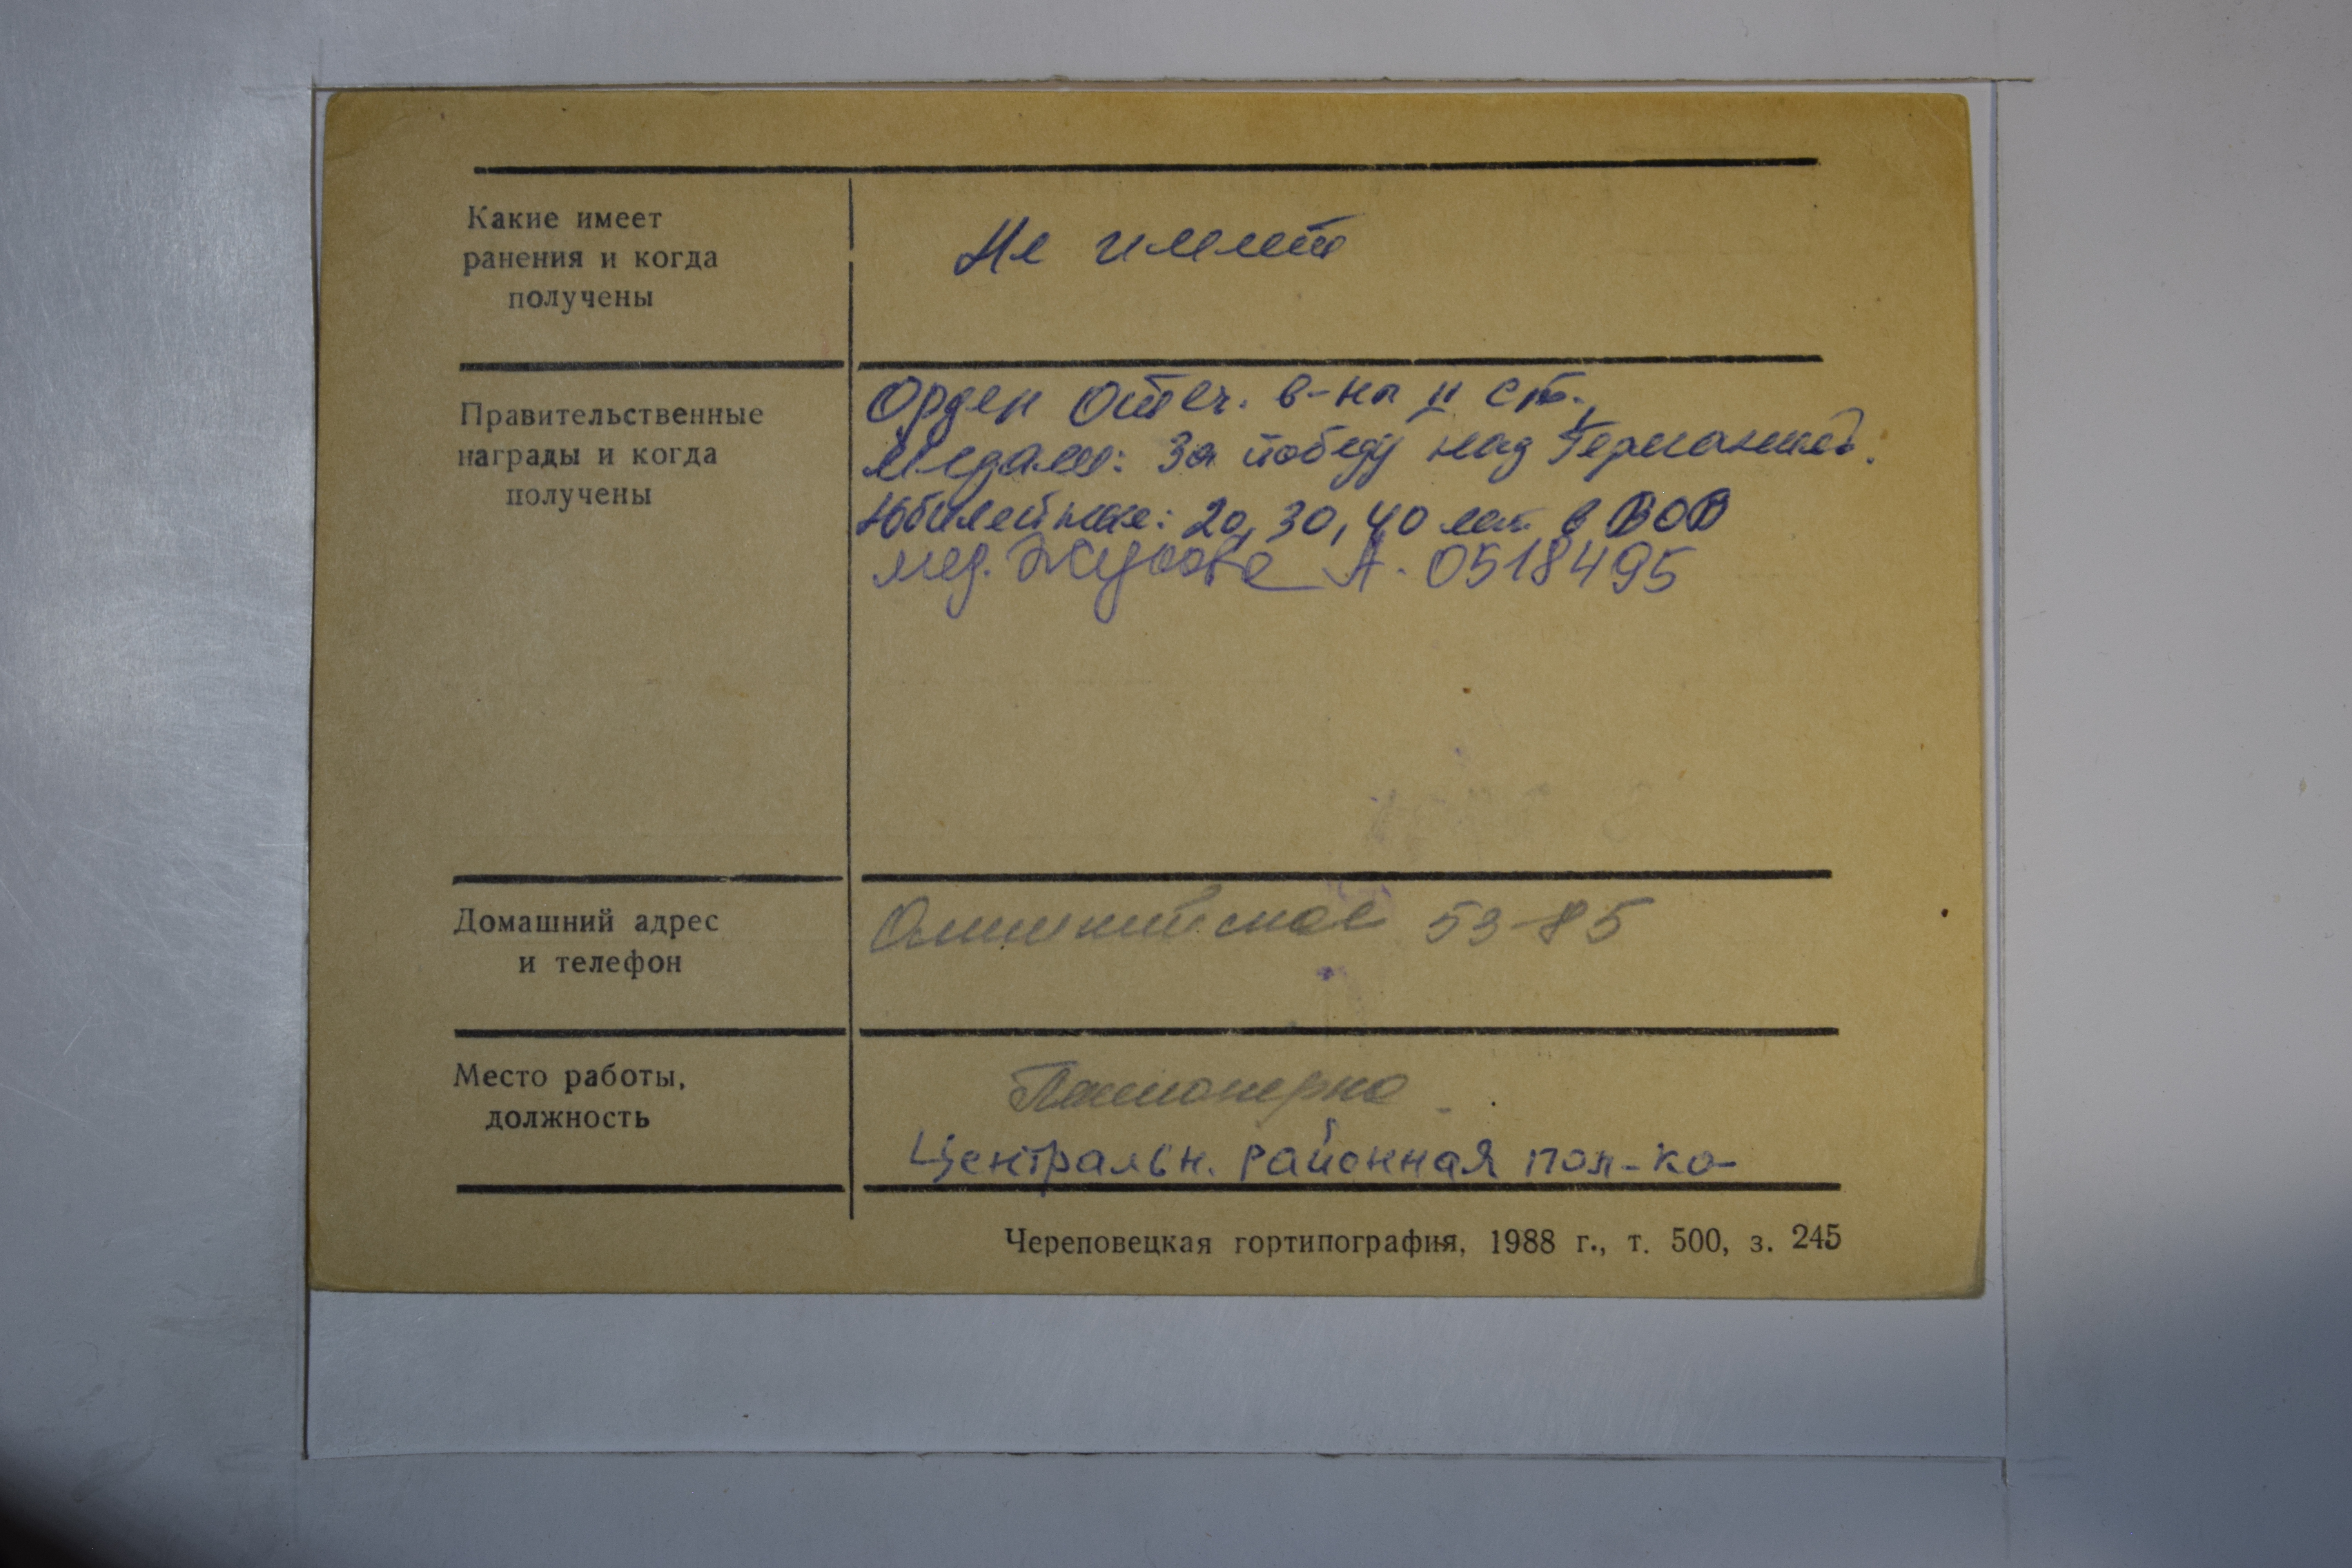 Какие имеет
ранения и когда
получены
Не имеет
Правительственные
награды и когда
получены
Орден Отеч. в-ны II ст.,
Медали: За победу над Германией.
Юбилейные: 20, 30, 40 лет в ВОВ
мед. Жукова А. 0518495
Домашний адрес
и телефон
Олимпийская 53-85
Место работы,
должность
Пенсионерка
Центральн. районная пол-ка
Череповецкая гортипография, 1988 г., т. 500, з. 245